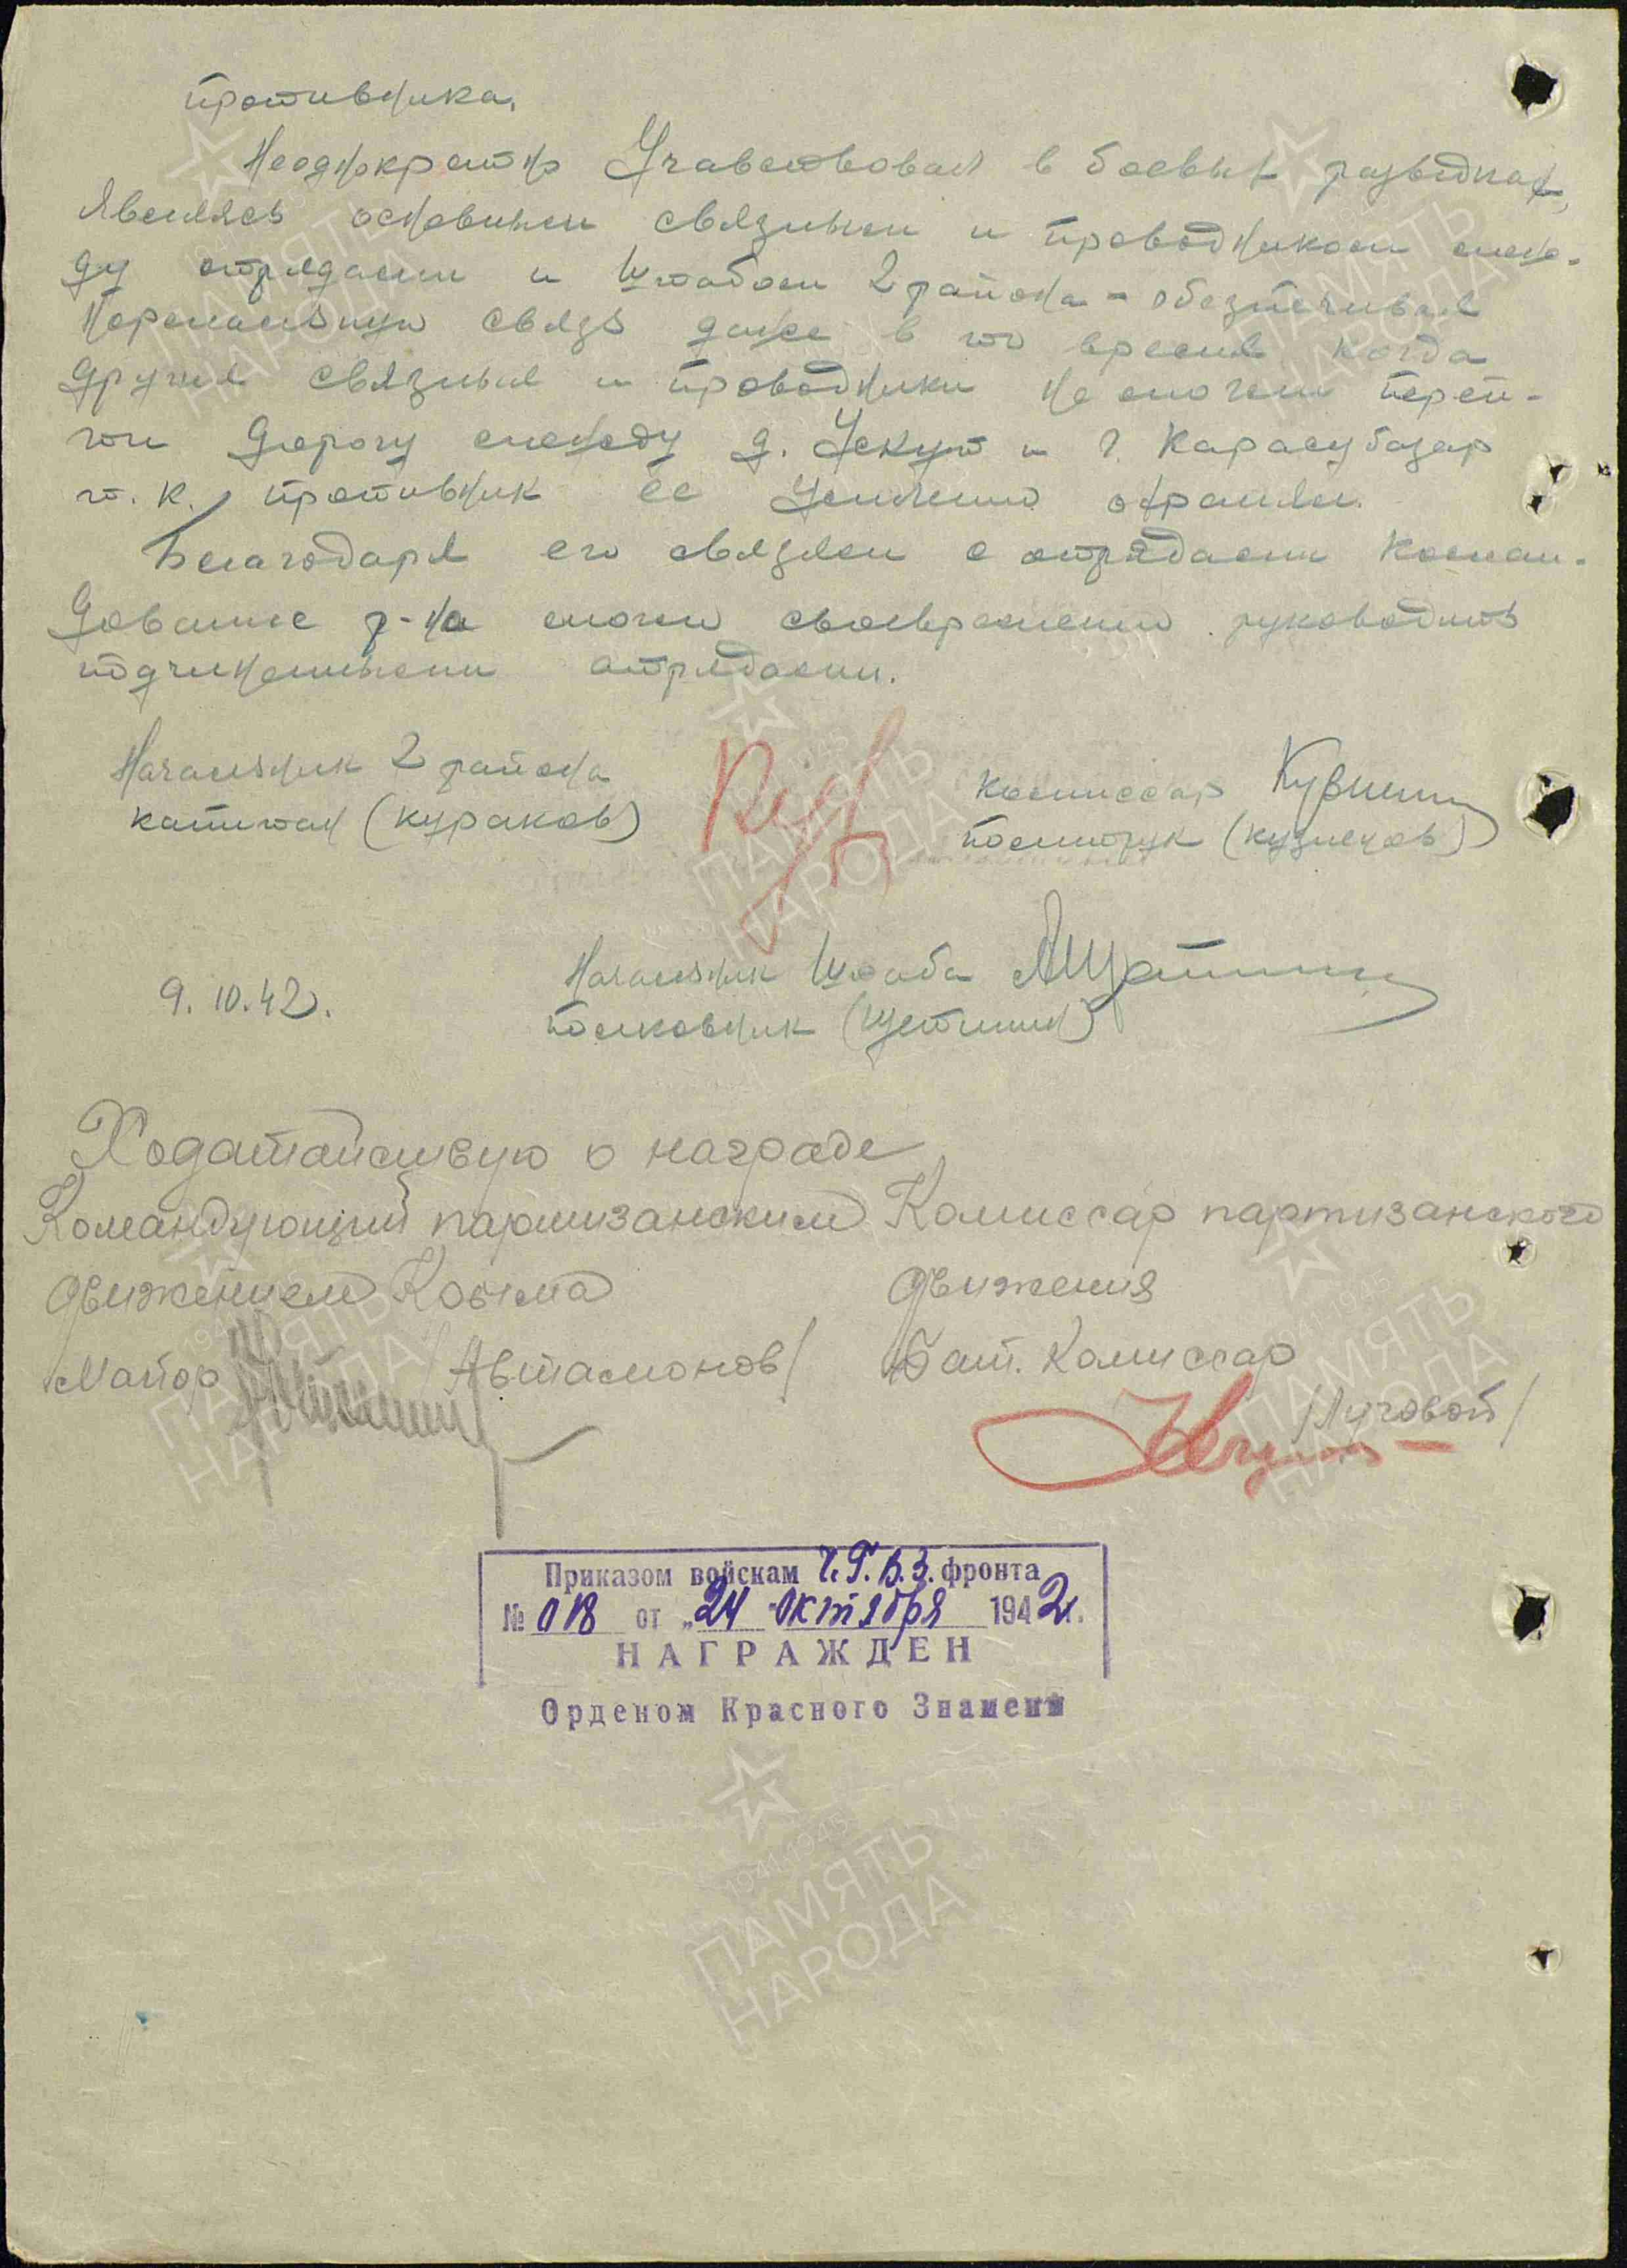 противника.
Неоднократно Участвовал в боевых разведках,
являясь основным связным и проводником меж-
ду отрядами и Штабом 2 района - обезпечивал
Нормальную связь даже в то время когда
другие связные и проводники не могли перей-
ти дорогу между д. Ускут и г. Карасубазар
т.к. противник её Усиленно охранял.
Благодаря его связям с отрядами Коман-
дование р-на могло своевременно руководить
подчиненными отрядами.
Начальник 2 района
капитан (Кураков)
Комиссар
политрук (Кузнецов)
9.10.42.
Начальник Штаба
полковник (Щетинин)
Ходатайствую о награде
Командующий партизанским
движением Крыма
Майор /Автамонов/
Комиссар партизанского
движения
Бат. Комиссар
/Луговой/
Приказом войскам Ч.Г.В.З. фронта
№ 018 от „24" октября 1942 г.
НАГРАЖДЕН
Орденом Красного Знамени
1941-1945
ПАМЯТЬ
НАРОДА